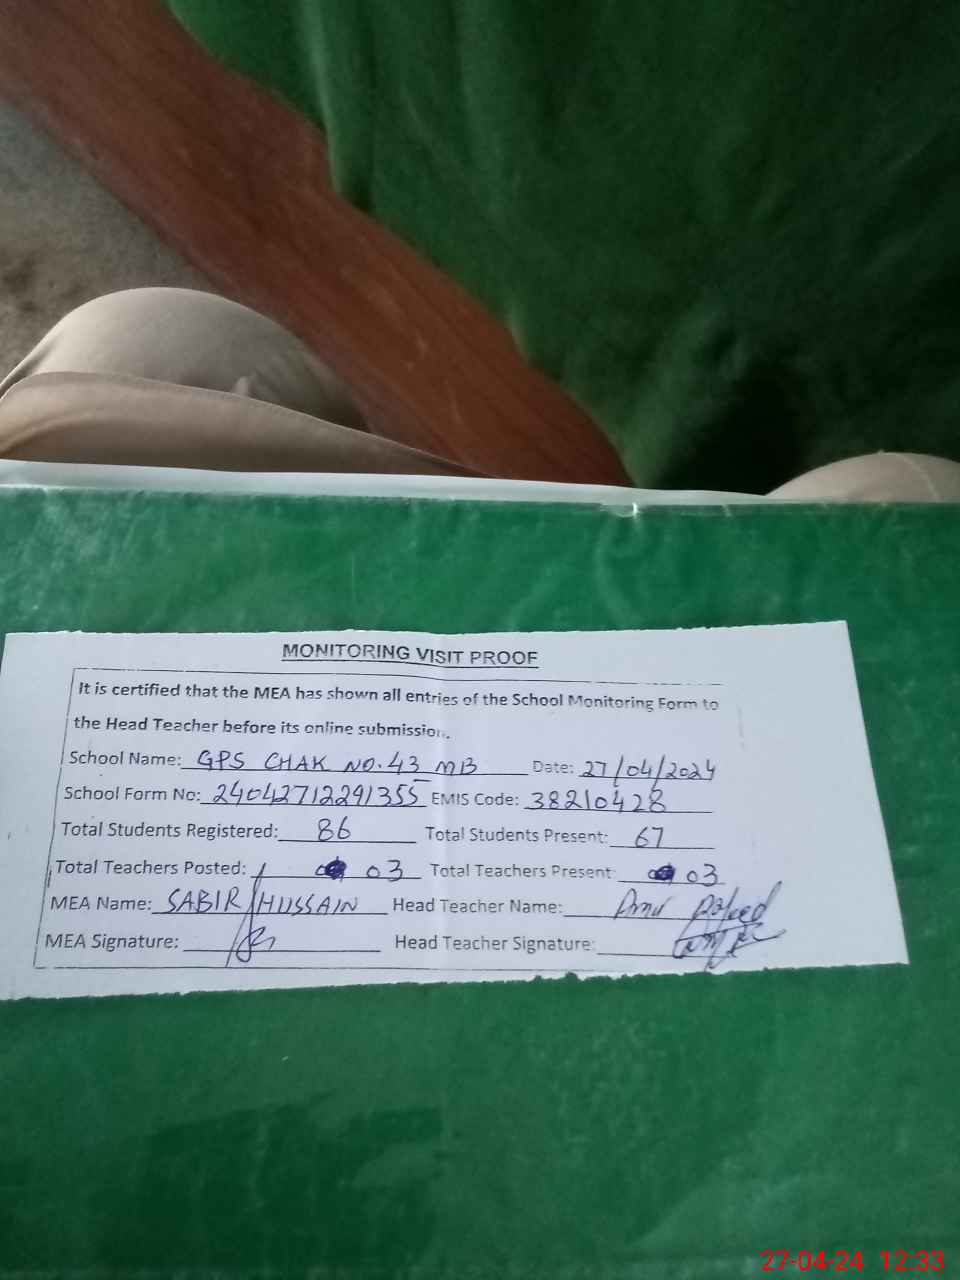 MONITORING VISIT PROOF
It is certified that the MEA has shown all entries of the School Monitoring Form to
the Head Teacher before its online submission.
School Name: GPS CHAK NO. 43 MB Date: 27/04/2024
School Form No: 24042712291355 EMIS Code: 38210428
Total Students Registered: 86 Total Students Present: 67
Total Teachers Posted: 03 Total Teachers Present: 03
MEA Name: SABIR HUSSAIN Head Teacher Name:
MEA Signature: Head Teacher Signature:
27-04-24 12:33